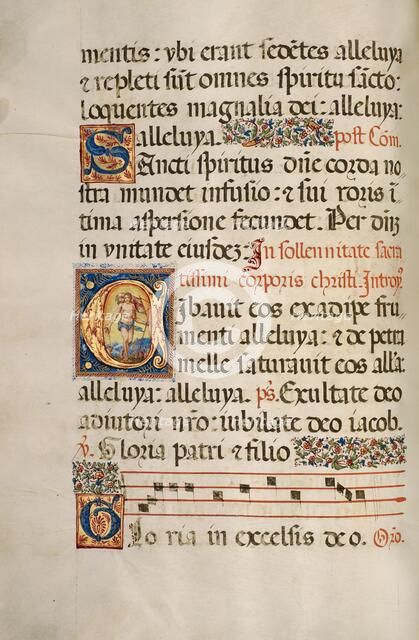 mentis: vbi erant sedētes alleluya
⁊ repleti sūt omnes spiritu sācto:
loquentes magnalia dei: alleluya:
alleluya. post Cōm
Sancti spiritus dn̄e corda no
stra mundet infusio: ⁊ sui roris ī
tima aspersione fecundet. Per dn̄z
in vnitate eiusdez: In sollennitate sacra
tissimi corporis christi. Introy
Cibauit eos ex adipe fru
menti alleluya: ⁊ de petra
melle saturauit eos alła:
alleluya: alleluya. ps. Exultate deo
adiutori nr̄o: iubilate deo iacob.
℣. Gloria patri ⁊ filio
Glo ria in excelsis de o. Oro.